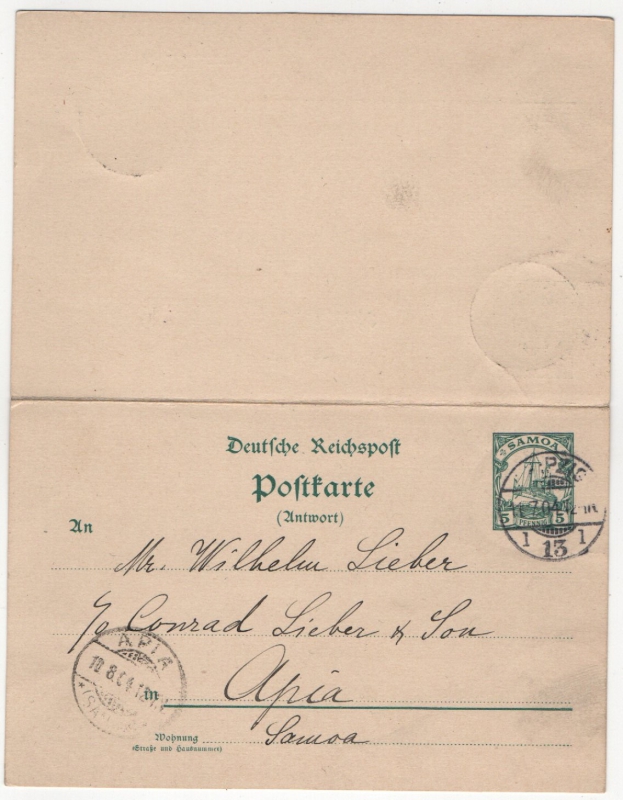 Deutsche Reichspost
Postkarte
(Antwort)
SAMOA
5 PFENNIG 5
1 13 1
An
Mr. Wilhelm Lieber
c/o Conrad Lieber & Son
APIA
in Apia
Samoa
Wohnung
(Straße und Hausnummer)